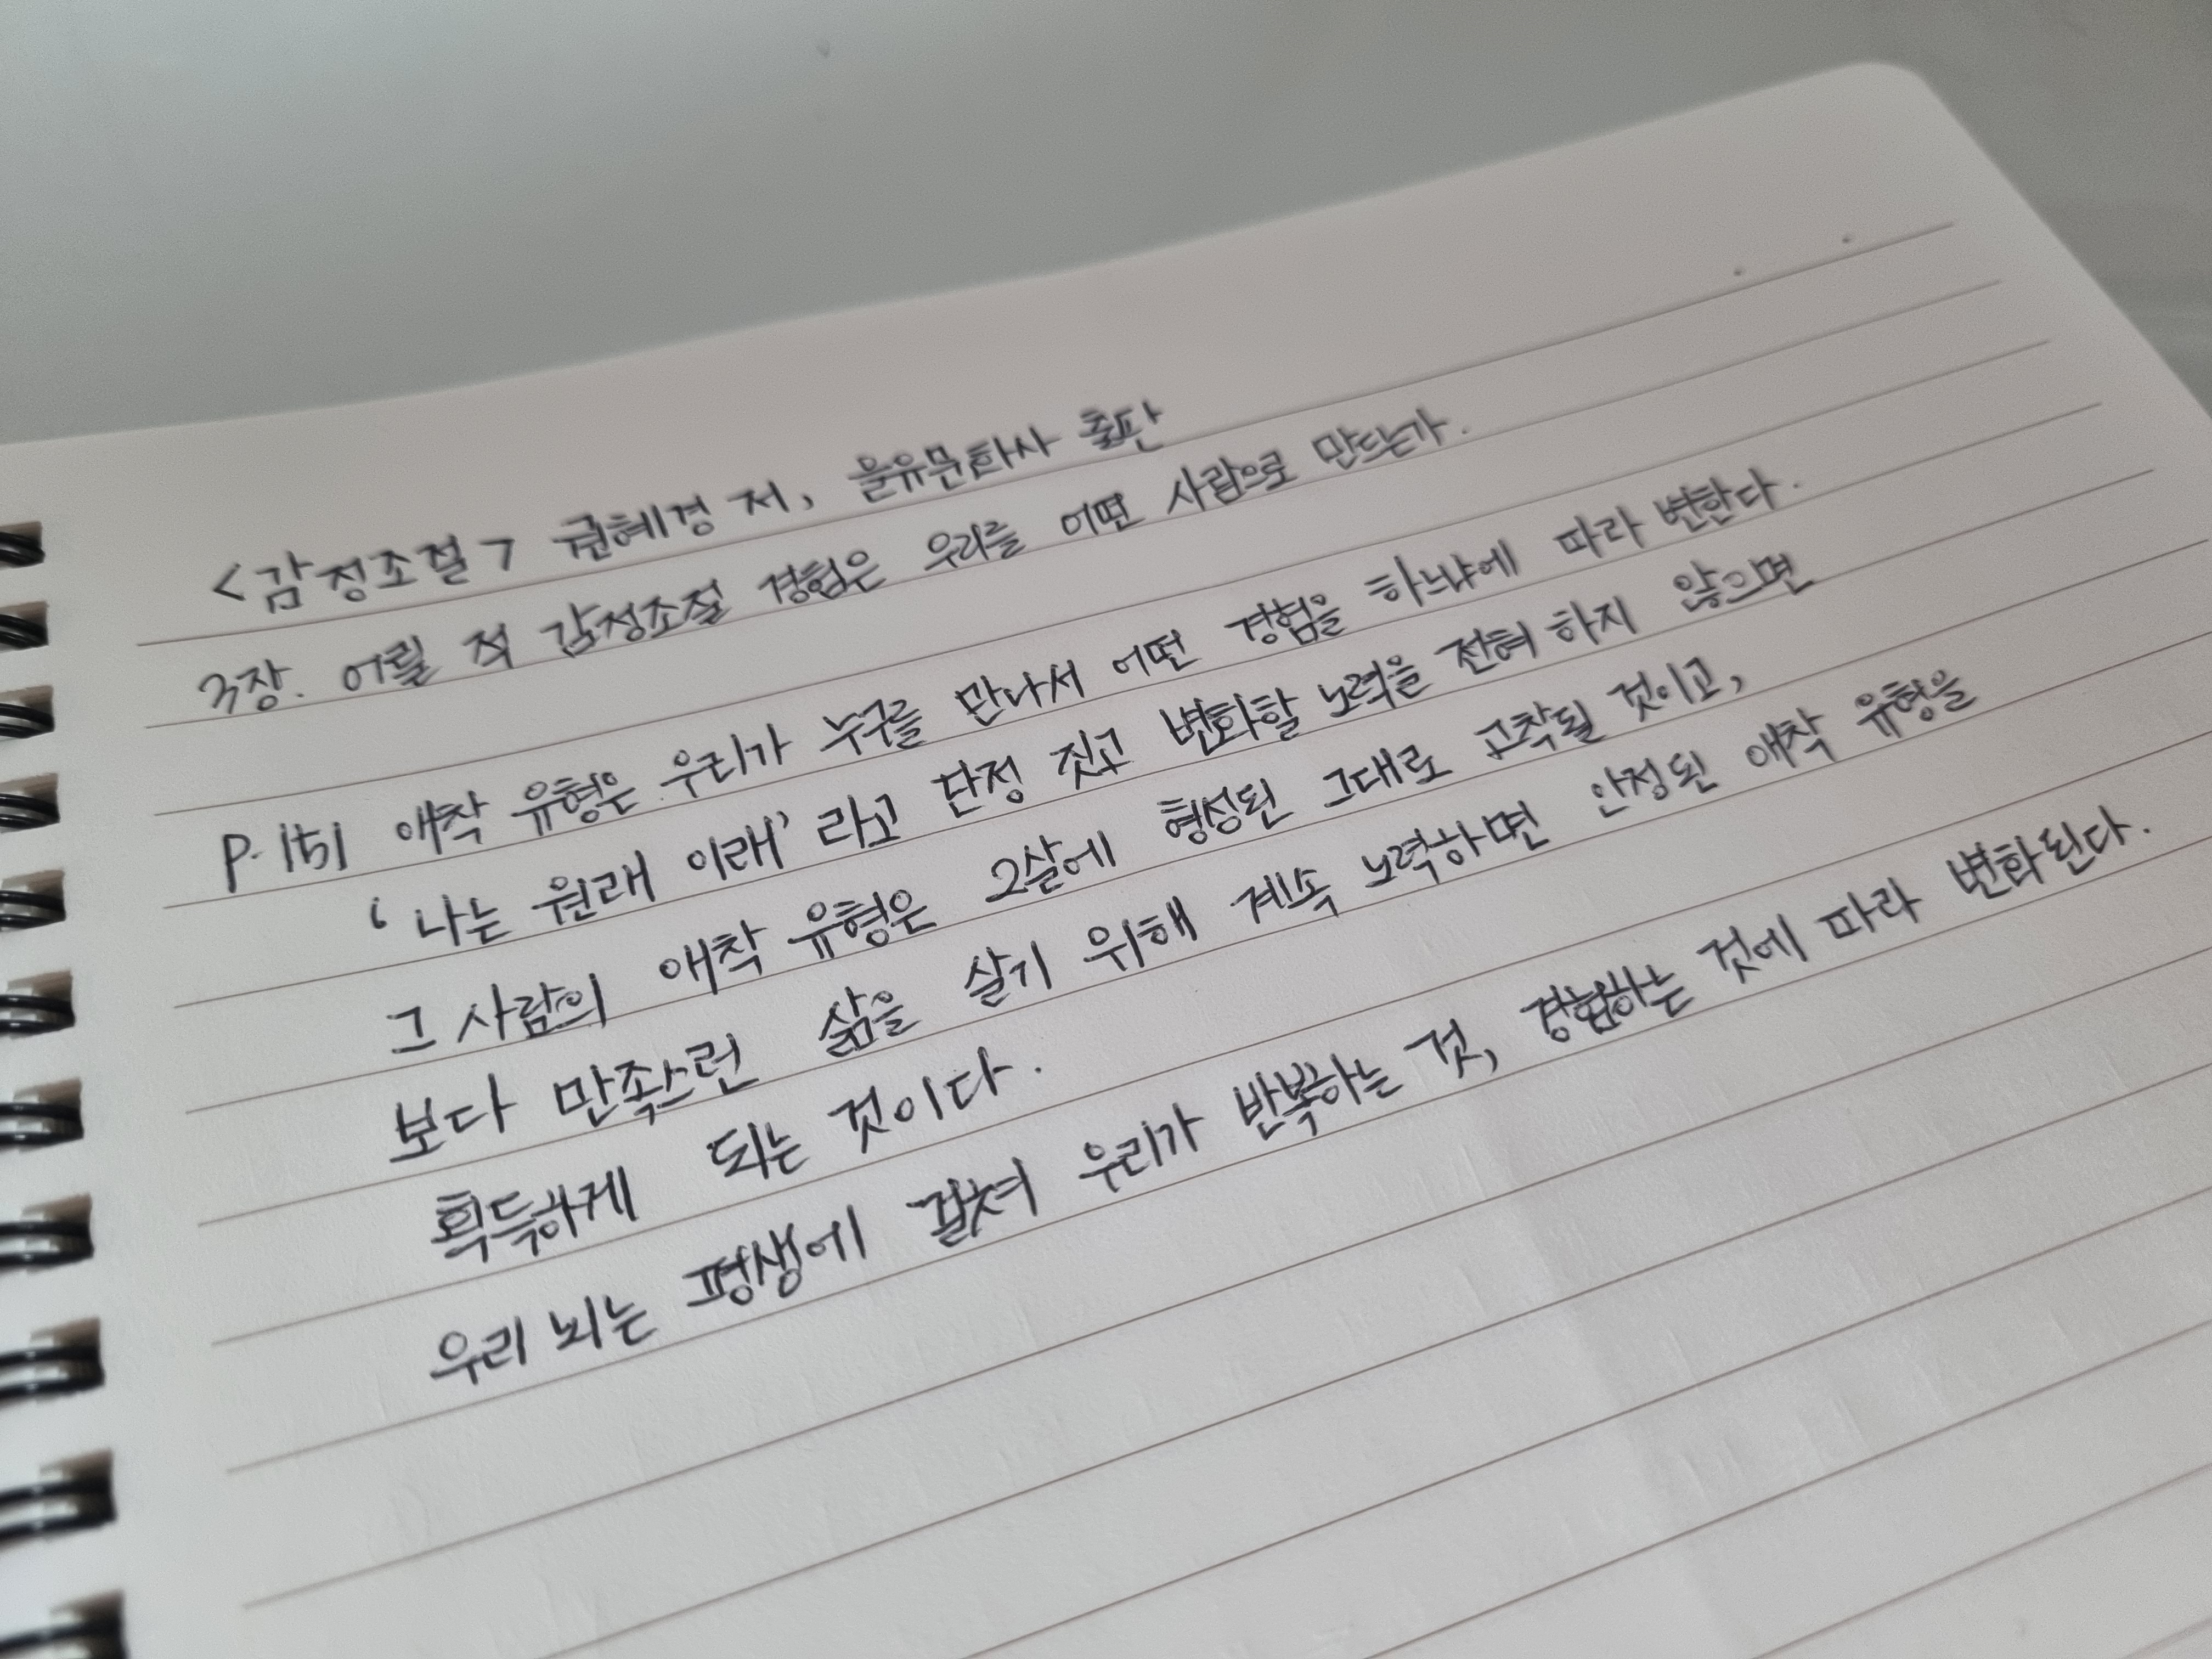 <감정조절> 권혜경 저, 을유문화사 출판
3장. 어릴 적 감정조절 경험은 우리를 어떤 사람으로 만드는가.
P. 151 애착 유형은 우리가 누구를 만나서 어떤 경험을 하느냐에 따라 변한다.
'나는 원래 이래' 라고 단정 짓고 변화할 노력을 전혀 하지 않으면
그 사람의 애착 유형은 2살에 형성된 그대로 고착될 것이고,
보다 만족스런 삶을 살기 위해 계속 노력하면 안정된 애착 유형을
획득하게 되는 것이다.
우리 뇌는 평생에 걸쳐 우리가 반복하는 것, 경험하는 것에 따라 변화된다.